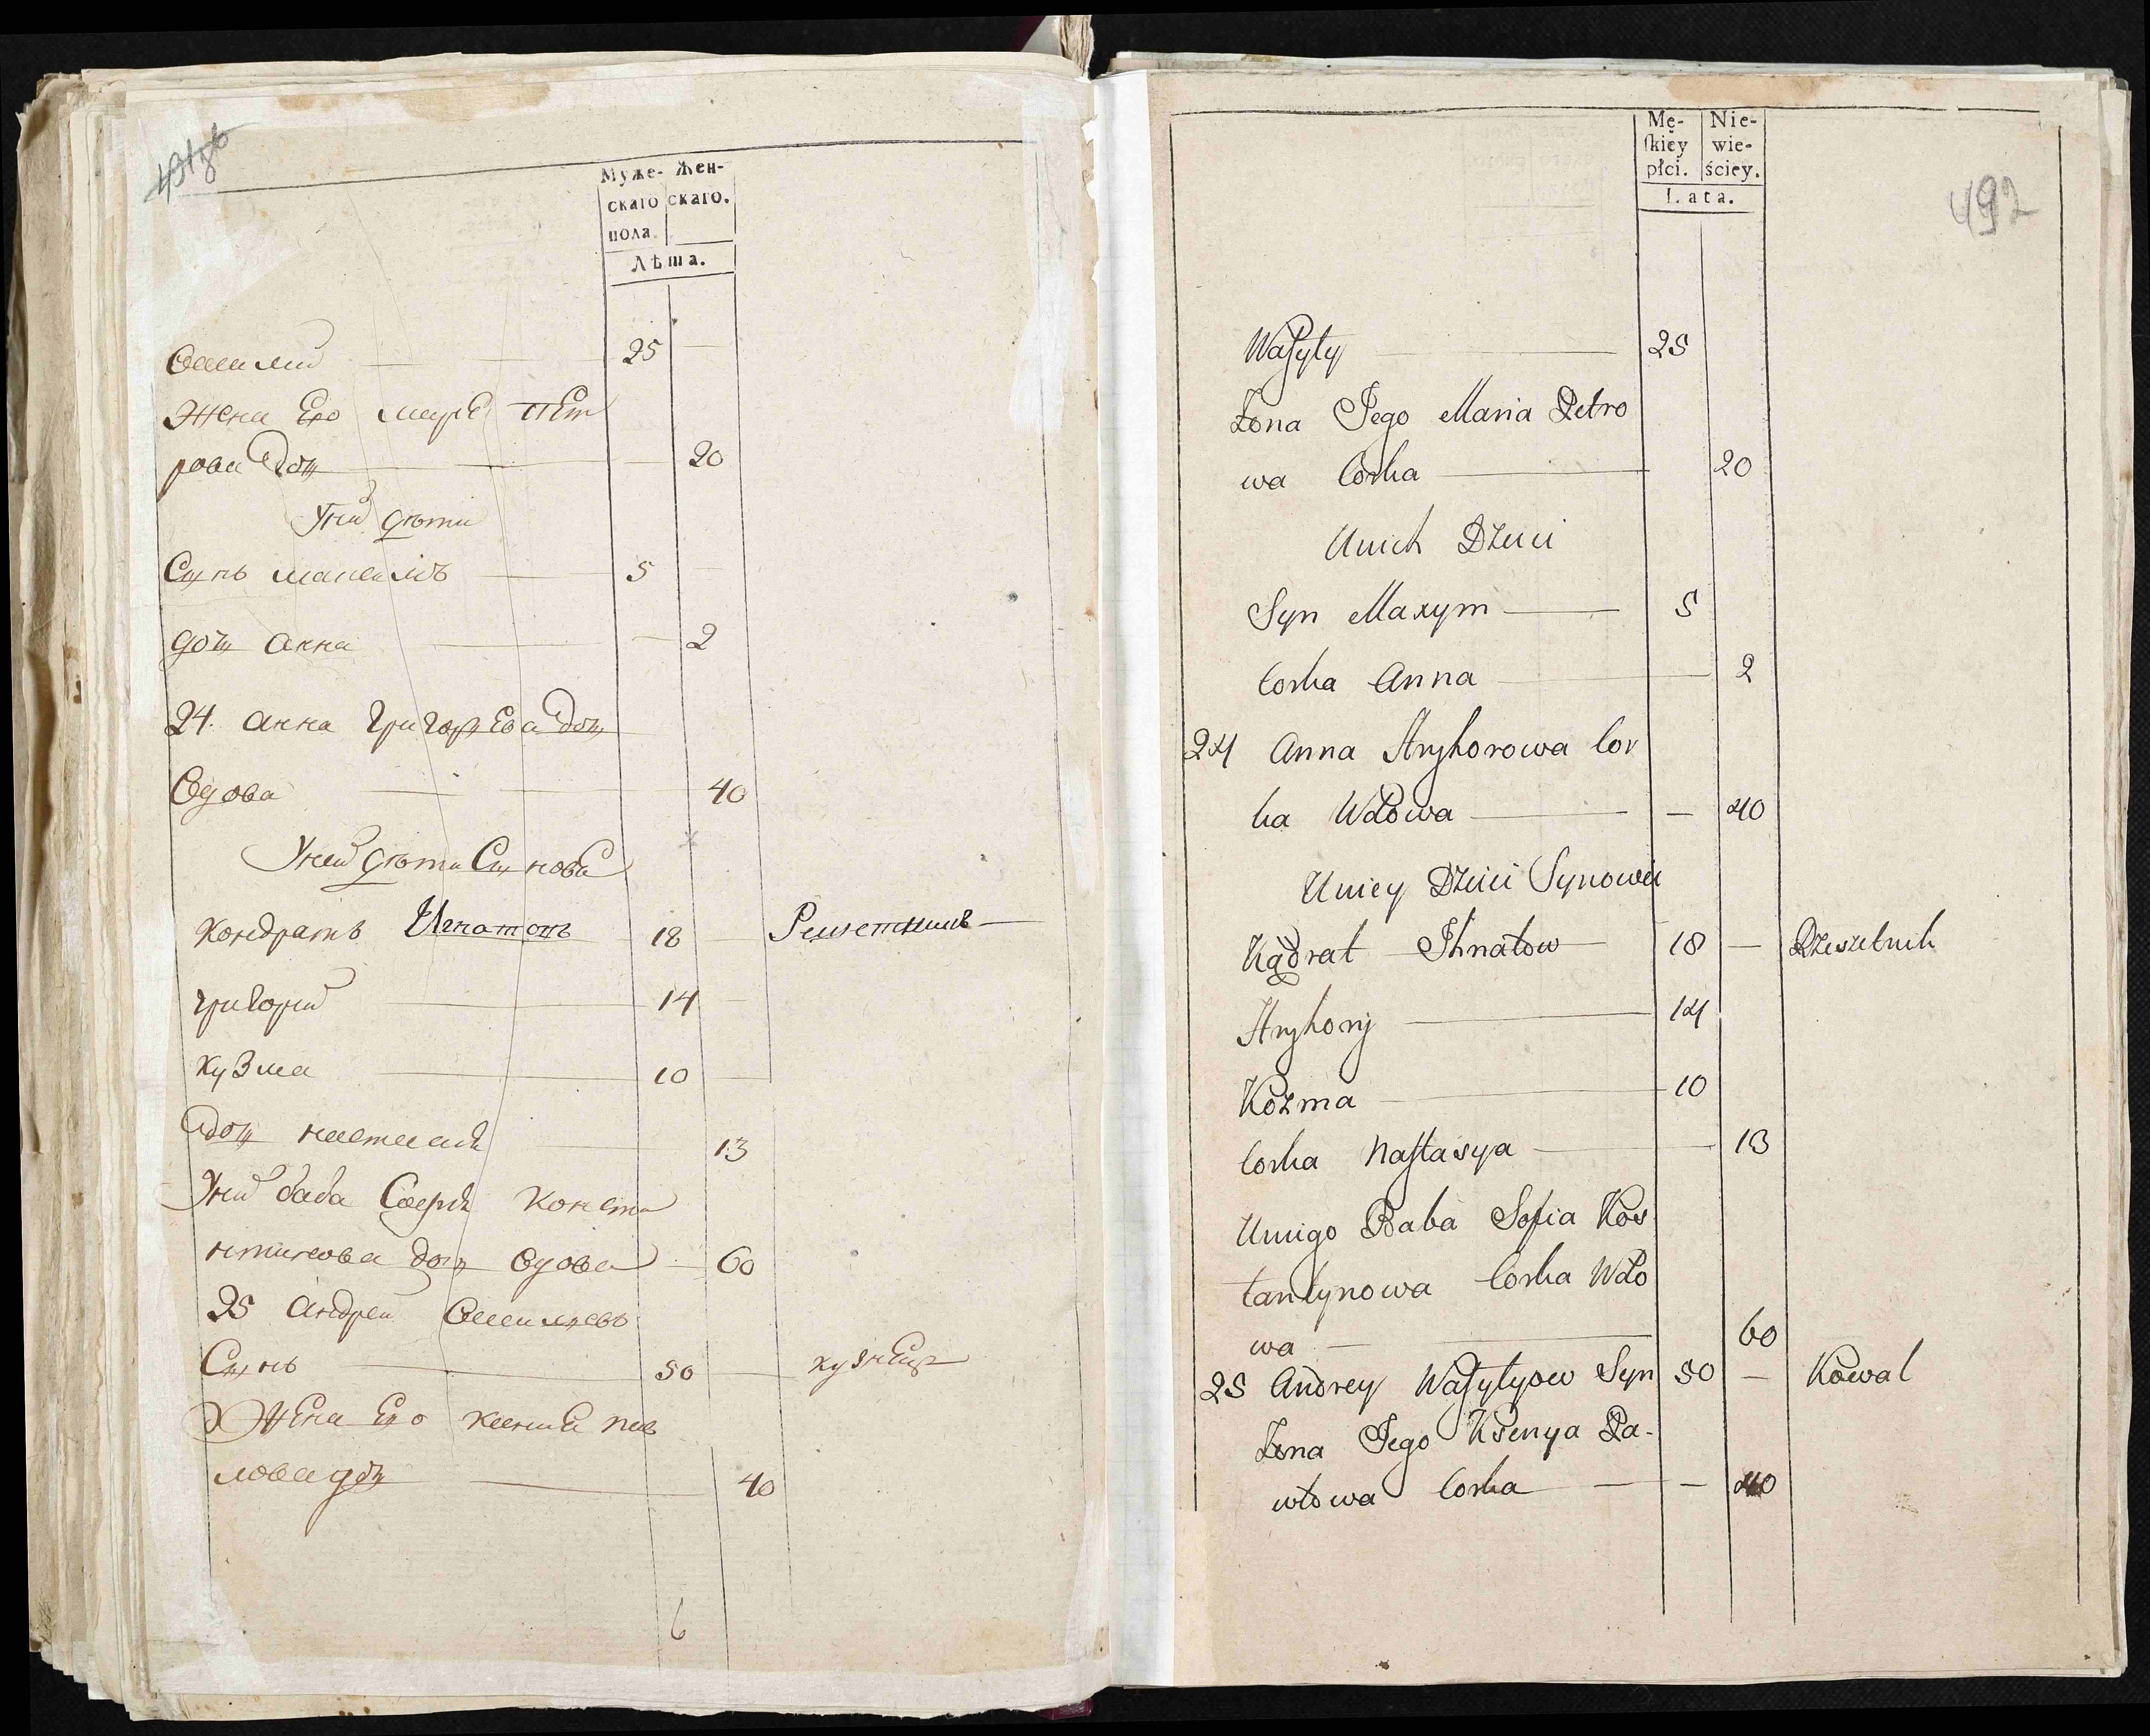 491об
Муже- Жен-
скаго скаго.
пола.
Лѣта.
Василий 25
Жена Его марѣ пет
рова доч 20
Уних дѣти
Сынъ максимъ 5
доч анна 2
24. анна григорьева доч
вдова 40
Уней дѣти Синовя
кондратъ Игнатовъ 18 Решетникъ
григорий 14
кузма 10
доч настасия 13
Них баба Софія Конста
нтинова доч вдова 60
25 андрей василиевъ
Сынъ 50 кузнецъ
Жена Его ксения пав
лова доч 40
6
Mę- Nie-
skiey wie-
płci. ściey.
Lata.
492
Wasyly 25
Żona Jego Maria Petro
wa Corka 20
Unich Dzieci
Syn Maxym 5
Corka Anna 2
24 Anna Hryhorowa Cor
ka Wdowa 40
Uniey Dzieci Synowie
Kądrat Ihnatow 18 Rzeszetnik
Hryhory 14
Kozma 10
Corka Nastasya 13
Uniigo Baba Sofia Kos
tantynowa Corka Wdo
wa 60
25 Andrey Wasylyow Syn 50 Kowal
Żona Jego Ksenya Pa-
włowa Corka 40